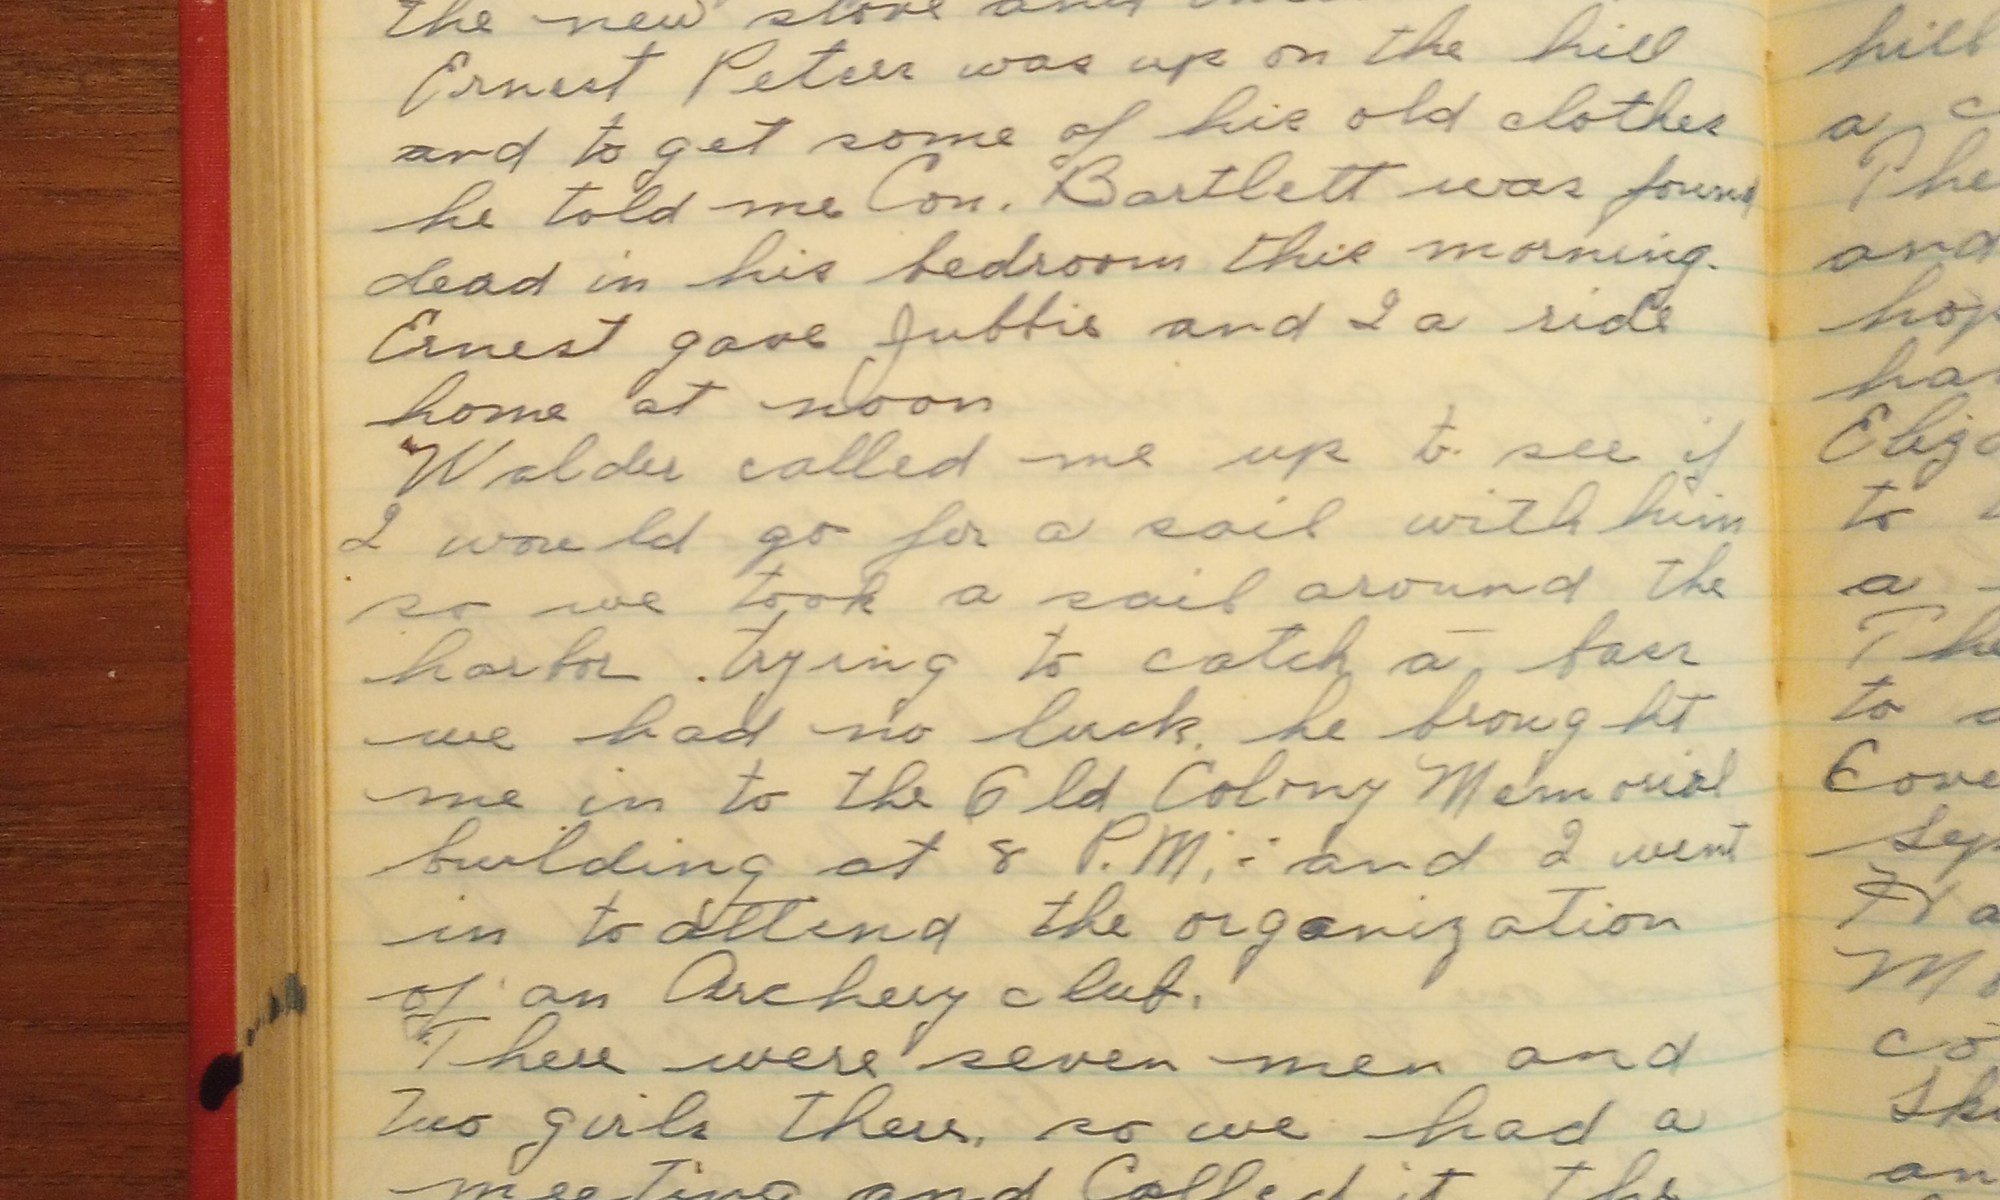 the new stove and
Ernest Peters was up on the hill
and to get some of his old clothes
he told me Con. Bartlett was found
dead in his bedroom this morning.
Ernest gave Jubbie and I a ride
home at noon
Walder called me up to see if
I would go for a sail with him
so we took a sail around the
harbor. trying to catch a bass
we had no luck. he brought
me in to the Old Colony Memorial
building at 8 P.M. and I went
in to attend the organization
of an Archery club.
There were seven men and
two girls there, so we had a
meeting and Called it the
hill
a
The
and
to
a
The
to